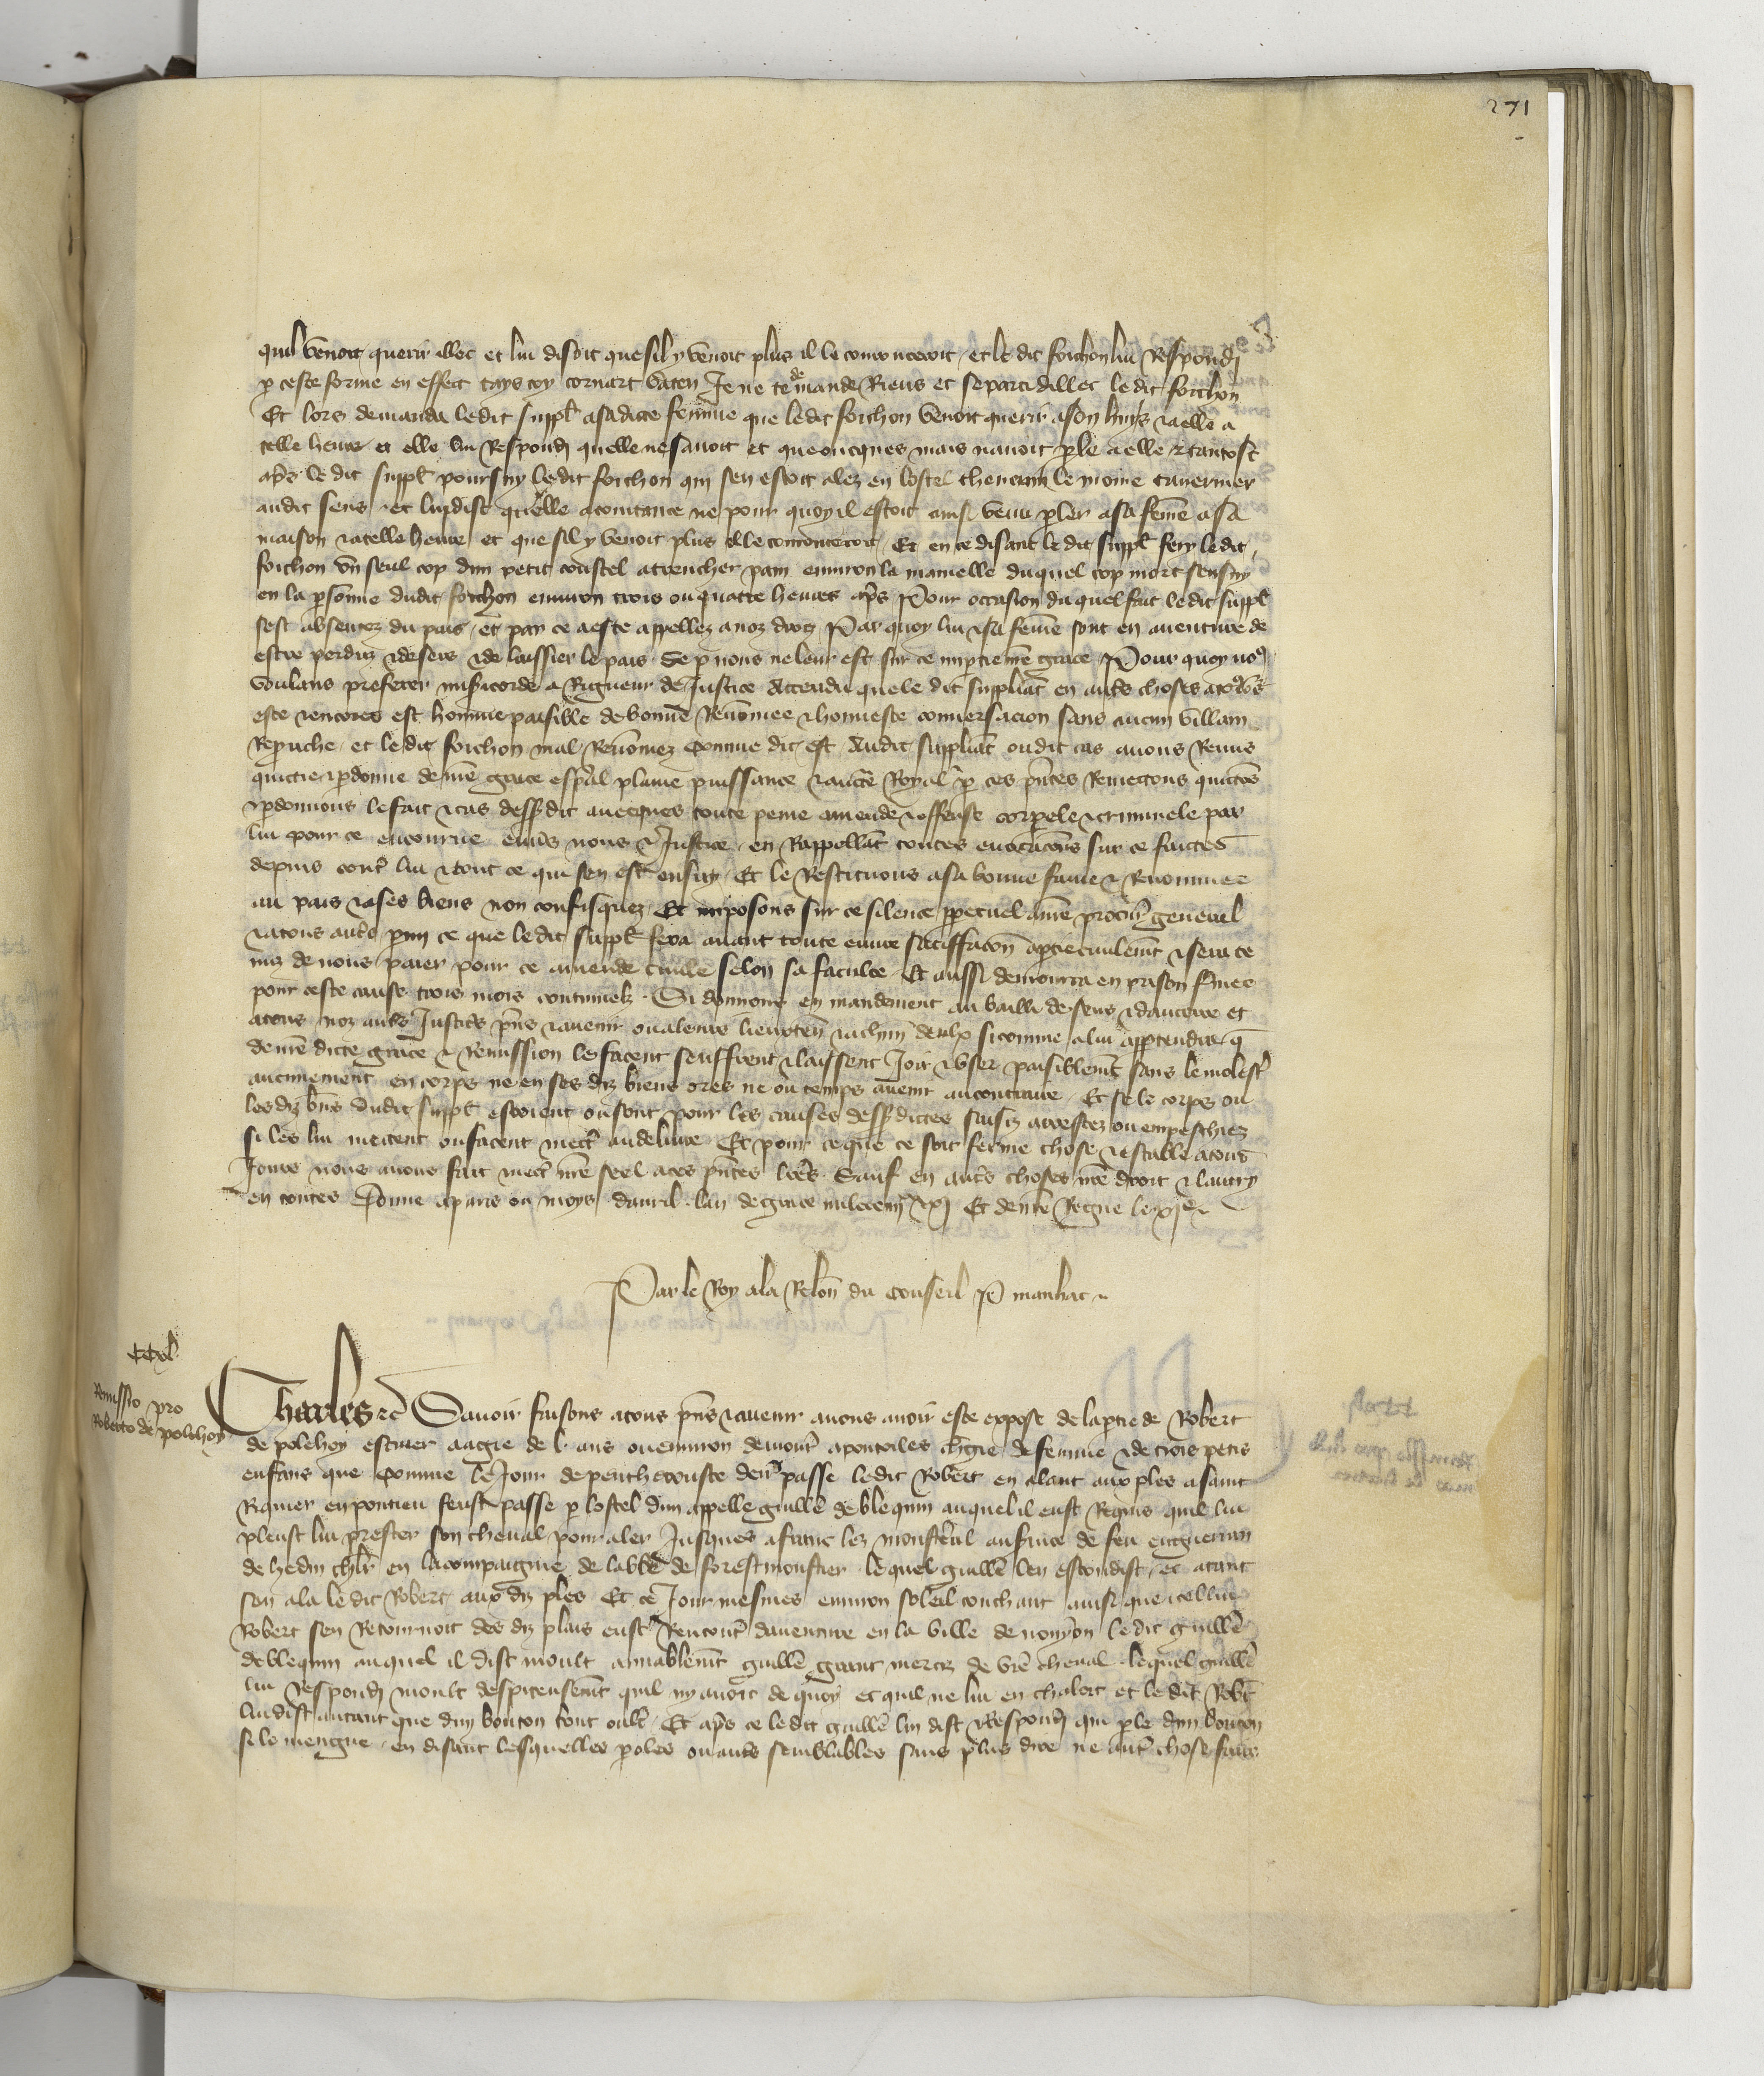 271
quil venoit querir illec et lui disoit que sil y venoit plus il le comonceroit et le dit forchon lui Respondi
p ceste forme en effect tays toy cornart vaten Je ne te demande Riens et se parti dillec le dit forchon
Et lors demanda ledit suppl asadicte femme que ledit forchon venoit querir ason huys & aelle a
telle heure et elle lui Respondi quelle ne savoit et que oncques mais navoit ple a elle & tantost
aps le dit suppl poursuy ledit forchon qui sen estoit alez en lostel thevenin le moine tavernier
audit sens et luy dist quelle acointance ne pour quoy il estoit ainsi venu pler asa feme asa
maison & atelle heure et que sil y venoit plus il le comonceroit Et en ce disant le dit suppl fery le dit
forchon un seul cop dun petit coustel a trencher pain environ la mamelle duquel cop mort sensuy
en la psonne dudit forchon environ trois ou quatre heures aps Pour occasion du quel fait ledit suppl
sest absentez du pais et par ce a este appellez a noz droiz Par quoy lui & sa feme sont en aventure de
estre perduz & desers & de laissier le pais Se p nous ne leur est sur ce imptie nre grace Pour quoy nos
voulans preferer misericorde a Rigueur de Justice Attendu que le dit suppliat en auts choses a tousjs
este & encores est homme paisible de bonne Renomee & honneste conversacion sans aucun villain
Reprouche et le dit forchon mal Renomez comme dit est Audit suppliat oudit cas avons Remis
quictie & pdonne de nre grace espal plaine puissance & aucte Royal p ces pntes Remettons quictos
& pdonnons le fait & cas dessusdit avecques toute peine amende & offense corporele & criminele par
lui pour ce encourue envs nous & Justice en Rappellat toutes evocacions sur ce faictes
depuis cont lui & tout ce qui sen est ensuy Et le Restituons a sa bonne fame & Renommee
au pais & ases biens non confisquez Et imposons sur ce silence ppetuel a nre procur general
& a tous auts pmi ce que le dit suppl fera avant toute euvre satisffacon aptie civilemt & sera te
nuz de nous paier pour ce amende civile selon sa faculte Et aussi demourra en prison fmee
pour ceste cause trois mois continuelz Si donnons en mandement au bailli de sens & daucerre et
atous noz auts Justics pns & avenir ou a leurs lieuxten & achun deulx si comme a lui apptendra q
de nre dicte grace & Remission le facent seuffrent & laissent Joir & user paisiblemt sans le molest
aucunement en corps ne en ses diz biens ores ne ou temps avenir au contraire Et se le corps ou
les diz bns dudit suppl estoient ou sont pour les causes dessusdictes saisiz arrestez ou empeschiez
si les lui mettent ou facent mett au delivre Et pour ce que ce soit ferme chose & estable atous
Jours nous avons fait mett nre seel a ces pntes lres Sauf en auts choses nre droit & lautry
en toutes Donne a paris ou moys davril lan de grace mil cccc iiijxx xj Et de nre Regne le xije
Par le Roy a la Relon du conseil P manhac
CCxl
Remissio pro
Roberto de polehoy
Charles &c Savoir faisons atous pns & avenir avons avoir este expose de la ptie de Robert
de polehoy escuier aagie de l ans ou environ demout a pontoiles chgie de femme & de trois petis
enfans que comme le Jour de penthecouste den passe ledit Robert en alant aux ples a saint
Riquier en pontieu feust passe p lostel dun appelle guille de blequin auquel il eust Requis quil lui
pleust lui prester son cheval pour aler Jusques a franc lez monsteul au svice de feu enguerran
de hedin chlr en la compaignie de labbe de forestmonstier lequel guille len escondist et atant
sen ala le dit Robert aux diz ples Et ce Jour mesmes environ soleil couchant ainsi que icellui
Robert sen Retournoit des diz plais eust Rencont daventure en la ville de nouyon le dit guille
de blequin auquel il dist moult amiablemt guille grant merciz de vre cheval lequel guille
lui Respondi moult despiteusemt quil ny avoit de quoy et quil ne lui en chaloit et le dit Robt
lui dist autant que dun bouton tout oult Et aps ce le dit guille lui dist & Respondi qui ple dun bouton
si le mengue en disant lesquelles poles ou auts semblables sans plus dire ne aut chose faire